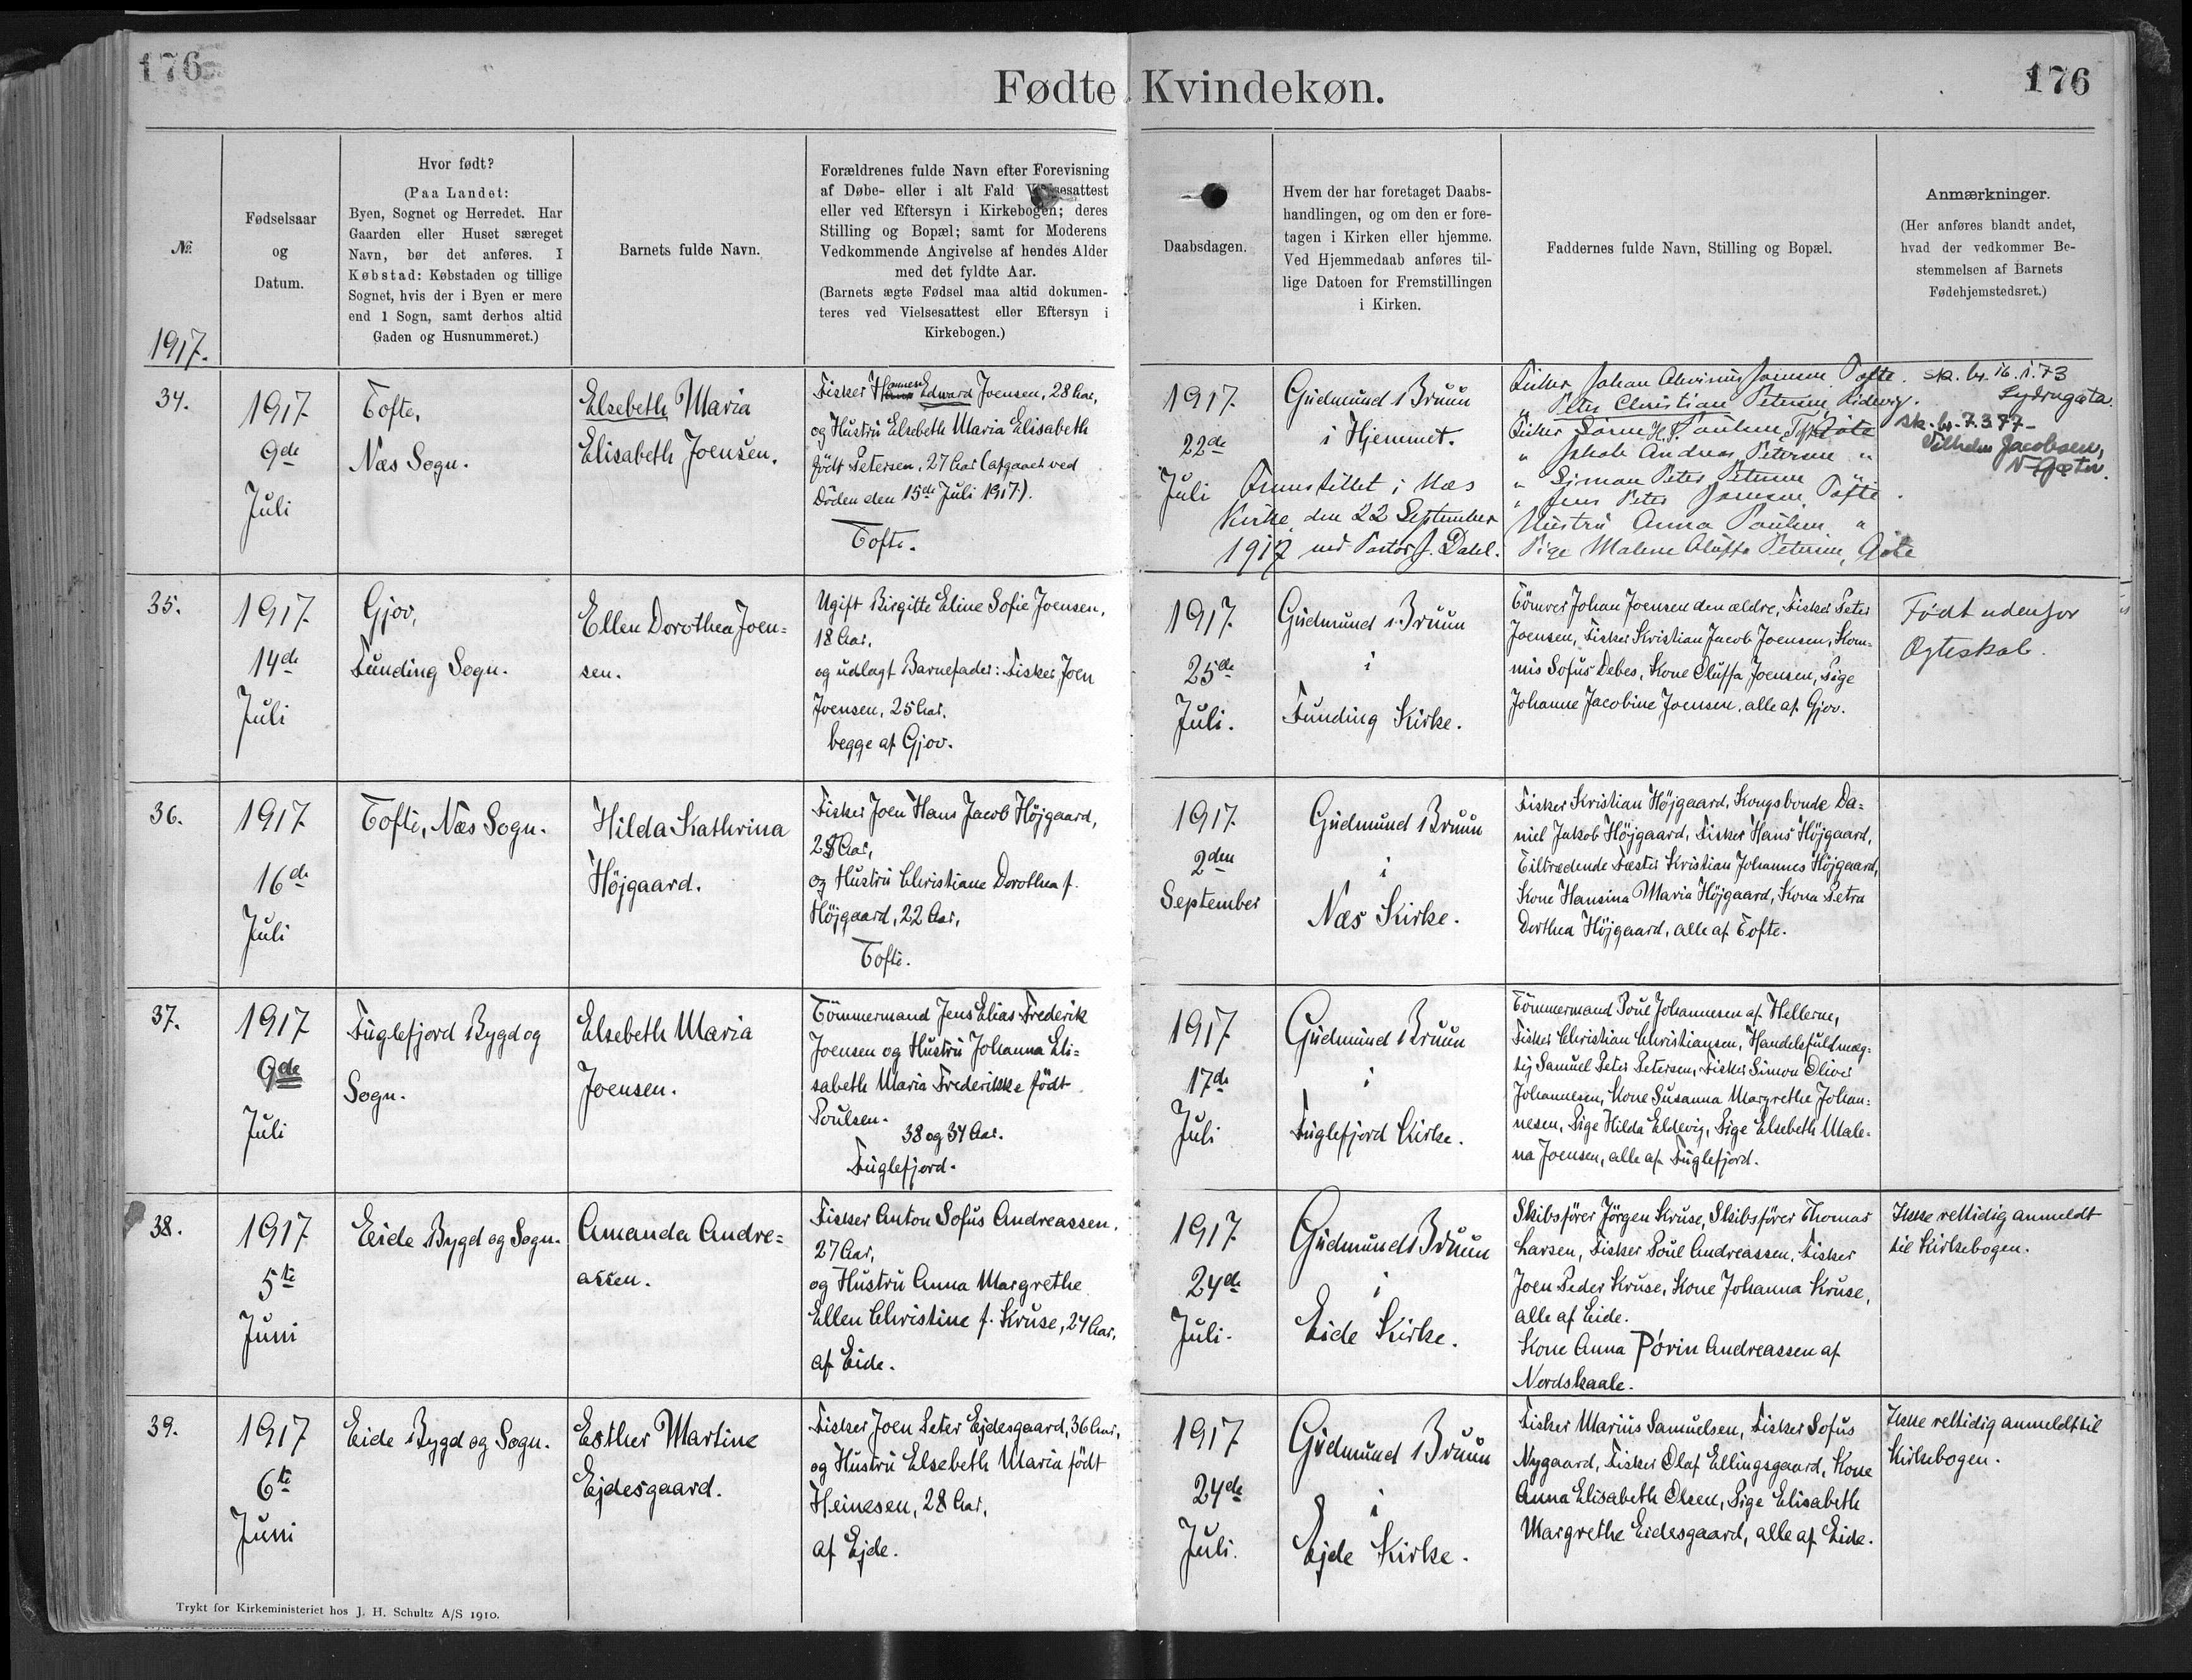 176
176
Fødte Kvindekøn.
№
1917.
Fødselsaar
og
Datum.
Hvor født?
(Paa Landet:
Byen, Sognet og Herredet. Har
Gaarden eller Huset særeget
Navn, bør det anføres. I
Købstad: Købstaden og tillige
Sognet, hvis der i Byen er mere
end 1 Sogn, samt derhos altid
Gaden og Husnummeret.)
Barnets fulde Navn.
Forældrenes fulde Navn efter Forevisning
af Døbe- eller i alt Fald Vielsesattest
eller ved Eftersyn i Kirkebogen; deres
Stilling og Bopæl; samt for Moderens
Vedkommende Angivelse af hendes Alder
med det fyldte Aar.
(Barnets ægte Fødsel maa altid dokumen-
teres ved Vielsesattest eller Eftersyn i
Kirkebogen.)
Daabsdagen.
Hvem der har foretaget Daabs-
handlingen, og om den er fore-
tagen i Kirken eller hjemme.
Ved Hjemmedaab anføres til-
lige Datoen for Fremstillingen
i Kirken.
Faddernes fulde Navn, Stilling og Bopæl.
Anmærkninger.
(Her anføres blandt andet,
hvad der vedkommer Be-
stemmelsen af Barnets
Fødehjemstedsret.)
34.
1917
9de
Juli
Tofte,
Næs Sogn.
Elsebeth Maria
Elisabeth Joensen.
Fisker Edward Joensen, 28 Aar,
og Hustrü Elsebeth Maria Elisabeth
födt Petersen, 27 Aar (afgaaet ved
Döden den 15de Juli 1917).
Tofte.
1917.
22de
Juli
Güdmund Bruun
i Hjemmet.
Fremstillet i Næs
Kirke, den 22 September
1917 ved Pastor J. Dahl.
Fisker Johan Joensen Tofte.
" Peter Christian Petersen
Fisker H. P. Poulsen
" Jakob Andreas Petersen "
" Simon Peter Petersen
" Jens Peter Joensen Tofte.
Hustru Anna Poulsen "
Pige Malene Oluffa Petersen, Göte
sk. br. 16.1.73
Sydrugøta
sk. br. 7.3.77-
Vilhelm Jacobsen,
N-Gøtu.
35.
1917.
14de
Juli
Gjov,
Funding Sogn.
Ellen Dorothea Joen=
sen.
Ugift Birgitte Eline Sofie Joensen,
18 Aar,
og udlagt Barnefader: Fisker Joen
Joensen, 25 Aar,
begge af Gjov.
1917.
25de
Juli.
Güdmünd Bruun
i
Funding Kirke.
Tömrer Johan Joensen den ældre, Fisker Peter
Joensen, Fisker Kristian Jacob Joensen, Kom-
mis Sofus Debes, Kone Oluffa Joensen, Pige
Johanne Jacobine Joensen, alle af Gjov.
Födt udenfor
Ægteskab.
36.
1917.
16de
Juli
Tofte, Næs Sogn.
Hilda Kathrina
Höjgaard.
Fisker Joen Hans Jacob Höjgaard,
28 Aar,
og Hustrü Christiane Dorothea f.
Höjgaard, 22 Aar,
Tofte.
1917.
2den
September
Güdmund Bruun
i
Næs Kirke.
Fisker Kristian Höjgaard, Kongsbonde Da=
niel Jakob Höjgaard, Fisker Hans Höjgaard,
Tiltrædende Fæster Kristian Johannes Höjgaard,
Kone Hansina Maria Höjgaard, Kona Petra
Dorthea Höjgaard, alle af Tofte.
37.
1917
9de
Juli
Füglefjord Bygd og
Sogn.
Elsebeth Maria
Joensen.
Tömmermand Jens Elias Frederik
Joensen og Hustrü Johanna Eli=
sabeth Maria Frederikke födt
Poulsen.
38 og 34 Aar.
Füglefjord.
1917.
17de
Juli
Güdmünd Bruun
i
Füglefjord Kirke.
Tömmermand Poul Johannesen af Hellerne,
Fisker Christian Christiansen, Handelsfuldmæg=
tig Samuel Peter Petersen, Fisker Simon Oliver
Johannesen, Kone Susanna Margrethe Johan=
nesen, Pige Hilda Eldevig, Pige Elsebeth Male-
na Joensen, alle af Füglefjord.
38.
1917
5te
Juni
Eide Bygd og Sogn.
Amanda Andre=
assen.
Fisker Anton Sofus Andreassen,
27 Aar,
og Hustrü Anna Margrethe
Ellen Christine f. Kruse, 24 Aar,
af Eide.
1917.
24de
Juli.
Güdmund Bruun
i
Eide Kirke.
Skibsförer Jörgen Kruse, Skibsförer Thomas
Larsen, Fisker Poul Andreassen, Fisker
Joen Peder Kruse, Kone Johanna Kruse,
alle af Eide.
Kone Anna Pórin Andreassen af
Nordskaale.
Ikke rettidig anmeldt
til Kirkebogen.
39.
1917
6te
Juni
Eide Bygd og Sogn.
Esther Martine
Ejdesgaard.
Fisker Joen Peter Ejdesgaard, 36 Aar,
og Hustrü Elsebeth Maria födt
Heinesen, 28 Aar,
af Ejde.
1917.
24de
Juli.
Güdmund Bruun
i
Ejde Kirke.
Fisker Marius Samuelsen, Fisker Sofus
Nygaard, Fisker Olaf Ellingsgaard, Kone
Anna Elisabeth Olsen, Pige Elisabeth
Margrethe Eidesgaard, alle af Eide.
Ikke rettidig anmeldt til
Kirkebogen.
Trykt for Kirkeministeriet hos J. H. Schultz A/S 1910.